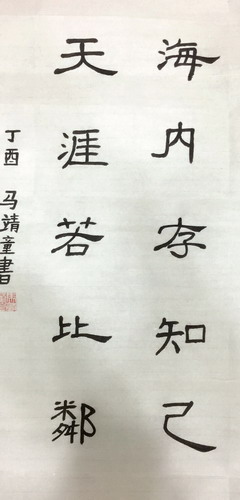 海内存知己
天涯若比鄰
丁酉 马靖童書